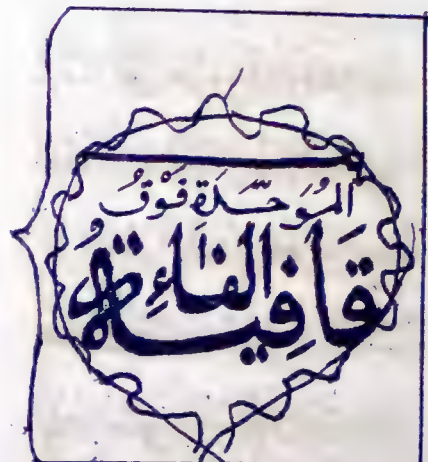 المُوَحَّدَةِ فَوْقُ
قَافِيَةُ الفَاءِ